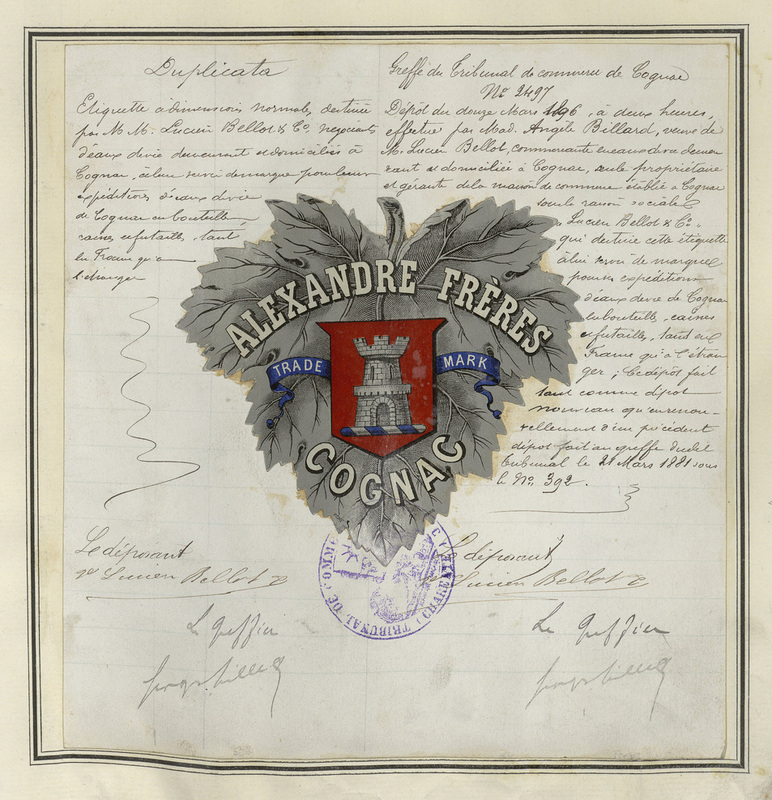 Duplicata
Etiquette à dimensions normales destinée
par M.M. Lucien Bellot & Co, négociants
d'eaux de vie demeurant et domiciliés à
Cognac, à leur servir de marque pour leurs
expéditions d'eaux de vie
de Cognac en bouteilles,
caisses et futailles, tant
en France qu'à
l'étranger
Greffe du Tribunal de commerce de Cognac
No 2497
Dépôt du douze Mars 1896, à deux heures,
effectué par Mad. Angèle Billard, veuve de
M. Lucien Bellot, commerçante en eaux de vie demeu
rant et domiciliée à Cognac, seule propriétaire
et gérante de la maison de commerce établie à Cognac
sous la raison sociale
Lucien Bellot & Co.
qui destine cette étiquette
à lui servir de marque
pour ses expéditions
d'eaux de vie de Cognac
en bouteilles, caisses
et futailles, tant en
France qu'à l'étran
ger ; ce dépôt fait
tant comme dépôt
nouveau qu'en renou-
vellement d'un précédent
dépôt fait au greffe dudit
tribunal le 21 Mars 1881 sous
le No. 392.
ALEXANDRE FRÈRES
TRADE MARK
COGNAC
Le déposant
Vve Lucien Bellot &
Le déposant
Lucien Bellot &
TRIBUNAL DE COMMERCE
(CHARENTE)
Le Greffier
Le Greffier